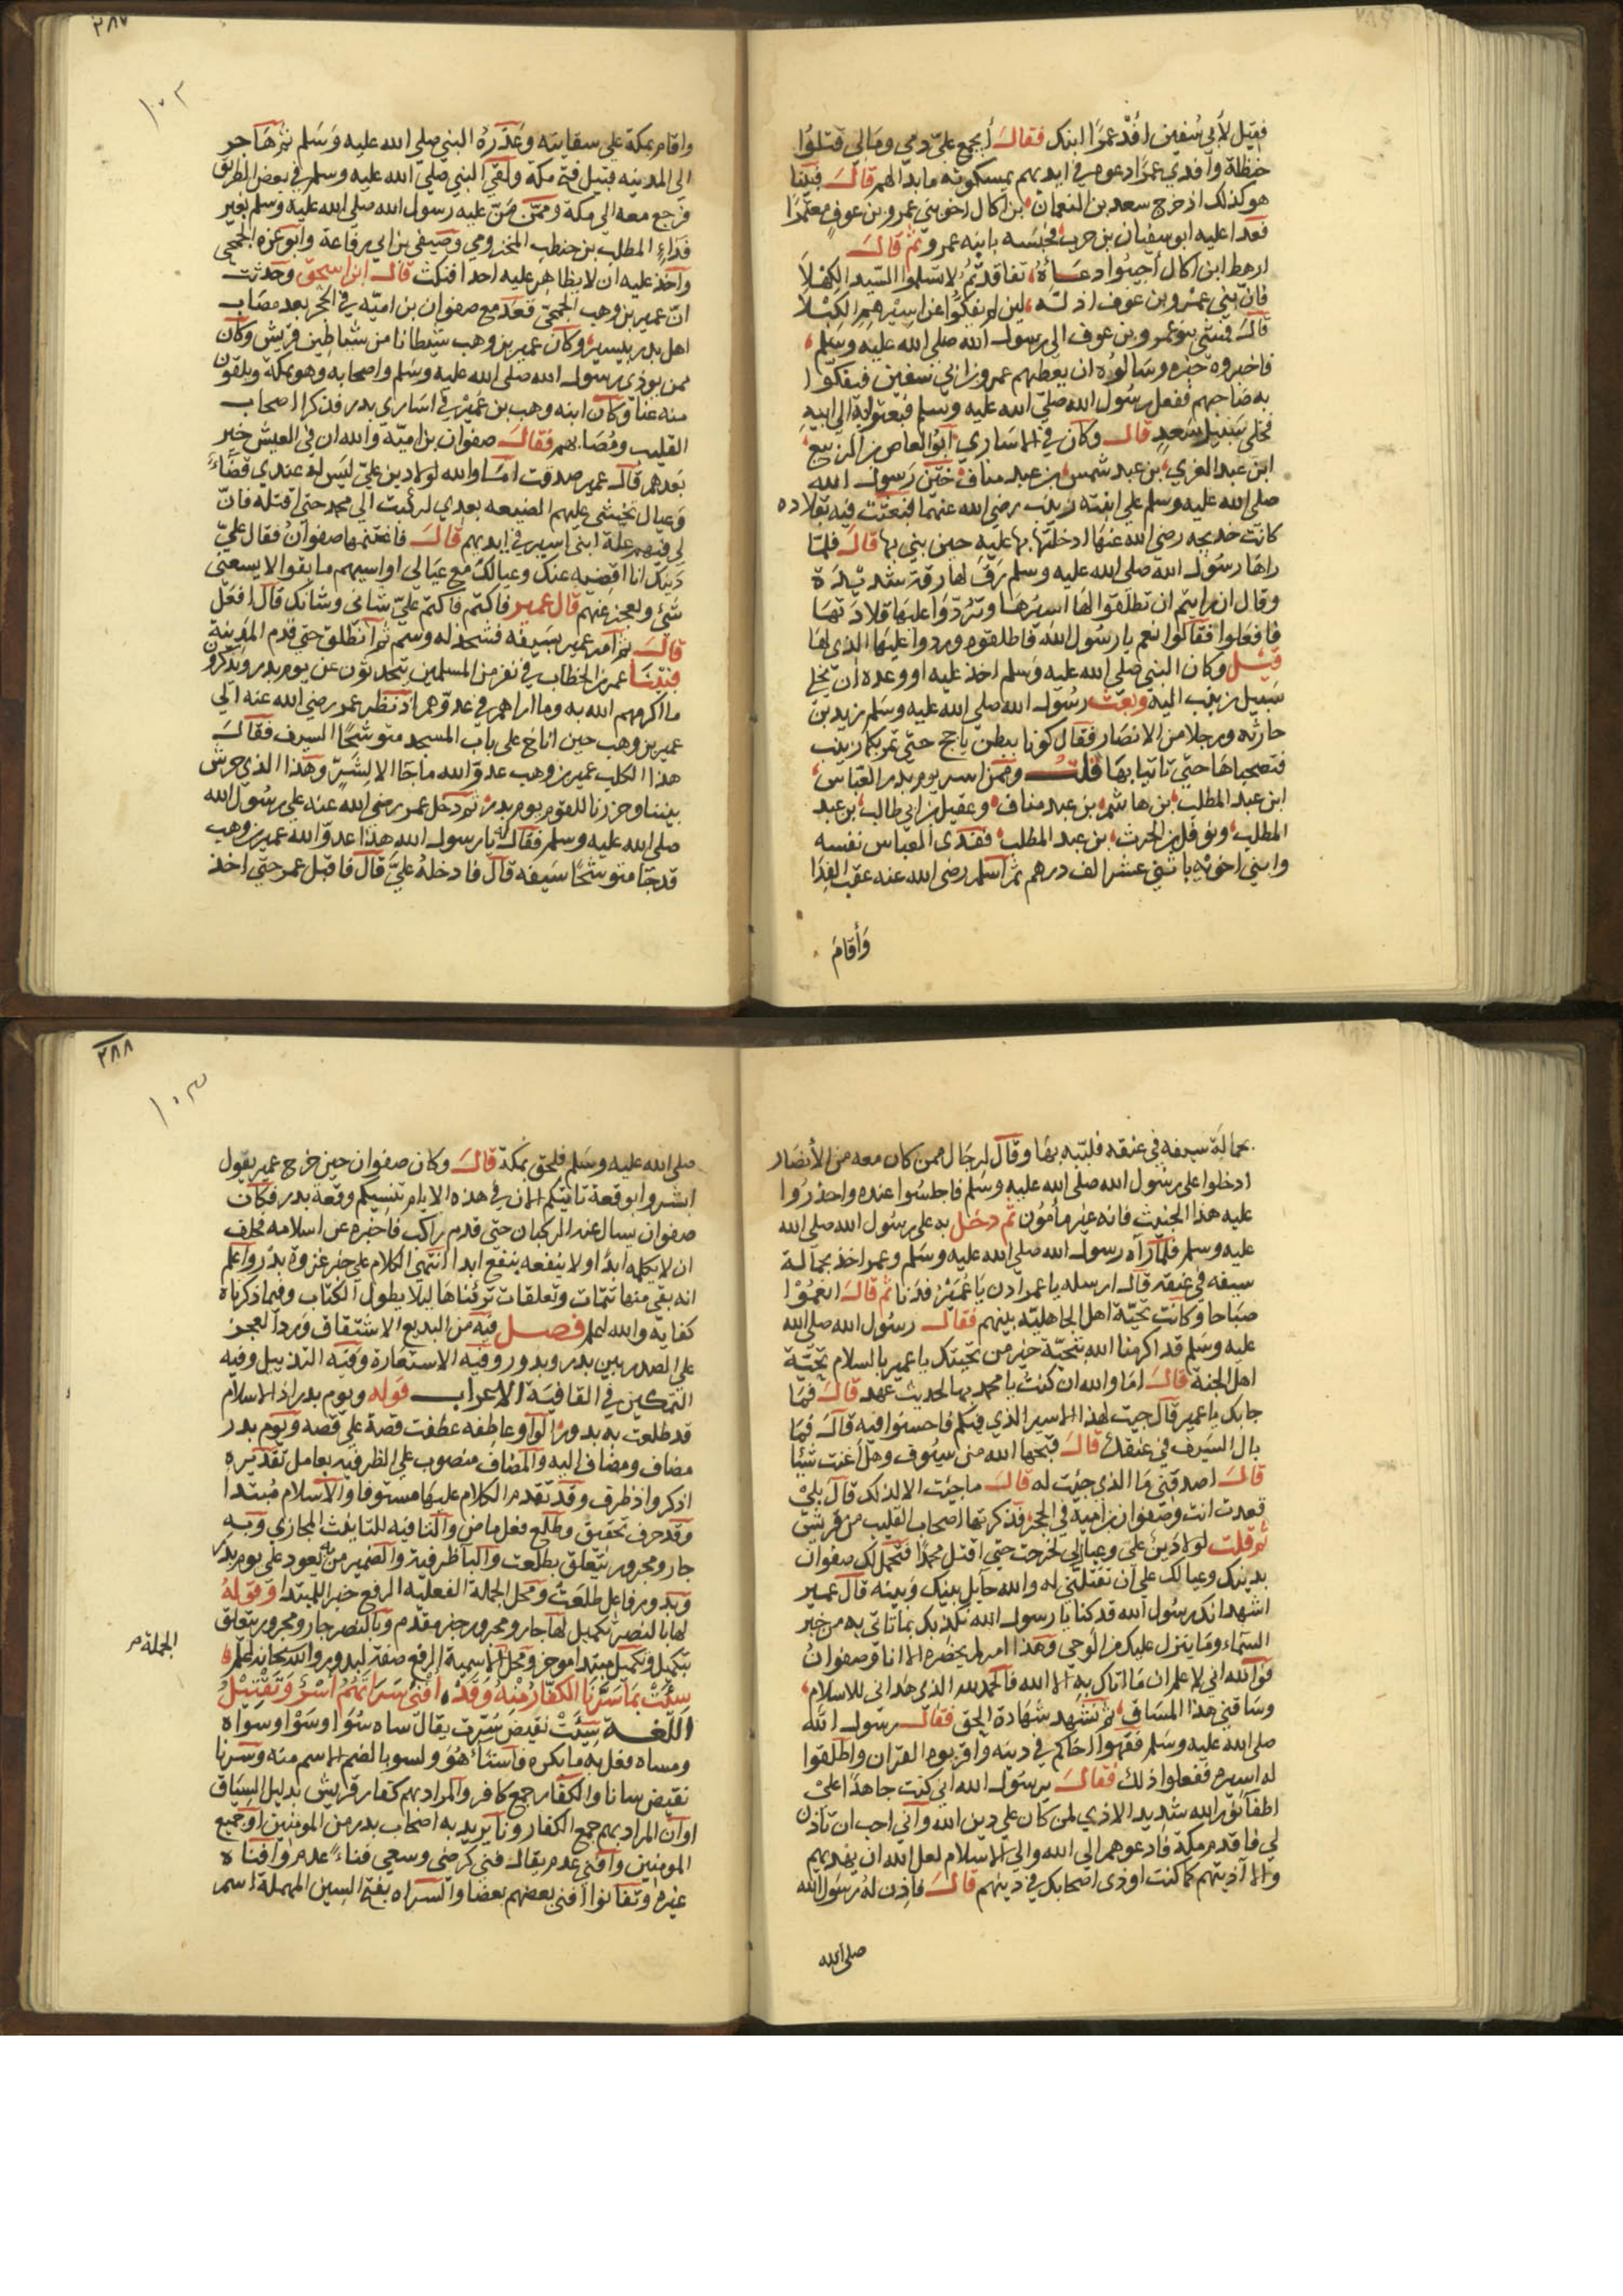 فقيل لأبي سفين افد عمرًا ابنك فقال أيجمع عليّ دمي ومالي قتلوا
حنظلة وأفدي عمرًا دعوه في ايديهم يمسكونه ما بدا لهم قال فبينا
هو كذلك اذ خرج سعد بن النعمان بن اكال اخو بني عمرو بن عوف معتمرًا
فعدا عليه ابو سفيان بن حرب فحبسه بابنه عمرو ثم قال
ارهط ابن اكال أجيبوا دعاءه تفاقدتم لا تسلموا السيد الكهلا
فان بني عمرو بن عوف اذلة لين لم يفكوا عن اسيرهم الكبلا
قال فمشي بنو عمرو بن عوف الي رسول الله صلى الله عليه وسلم
فاخبروه خبره وسالوه ان يعطيهم عمرو بن ابي سفين فيفكوا
به صاحبهم ففعل رسول الله صلى الله عليه وسلم فبعثوا به الي ابيه
فخلي سبيل سعد قال وكان في الاساري ابو العاص بن الربيع
ابن عبد العزي بن عبد شمس بن عبد مناف ختن رسول الله
صلى الله عليه وسلم علي ابنته زينب رضي الله عنهما فبعثت فيه بقلاده
كانت خديجه رضي الله عنها ادخلتها بها عليه حين بني بها قال فلما
راها رسول الله صلى الله عليه وسلم رق لها رقة شديدة
وقال ان رايتم ان تطلقوا لها اسيرها وتردوا عليها قلادتها
فافعلوا فقالوا نعم يا رسول الله فاطلقوه وردوا عليها الذي لها
قيل وكان النبي صلى الله عليه وسلم اخذ عليه او وعده ان يخلي
سبيل زينب اليه وبعث رسول الله صلى الله عليه وسلم زيد بن
حارثه ورجلا من الانصار فقال كونا ببطن ياجج حتي تمر بكما زينب
فتصحباها حتي تاتيا بها قلت وممن اسر يوم بدر العباس
ابن عبد المطلب بن هاشم بن عبد مناف وعقيل بن ابي طالب بن عبد
المطلب ونوفل بن الحرث بن عبد المطلب ففدي العباس نفسه
وابني اخويه باثني عشر الف درهم ثم اسلم رضي الله عنه عقب الفدا
وأقام
٣٨٧
١٠٢
واقام بمكة علي سقايته وعذره النبي صلى الله عليه وسلم ثم هاجر
الي المدينه قبيل فتح مكه ولقي النبي صلى الله عليه وسلم في بعض الطريق
فرجع معه الي مكة وممن منّ عليه رسول الله صلى الله عليه وسلم بغير
فداء المطلب بن حنطب المخزومي وصيفي بن ابي رفاعة وابو عزه الجمحي
واخذ عليه ان لا يظاهر عليه احدا فنكث قال ابن اسحق وحدثت
ان عمير بن وهب الجمحي قعد مع صفوان بن اميه في الحجر بعد مصاب
اهل بدر بيسير وكان عمير بن وهب شيطانا من شياطين قريش وكان
ممن يوذي رسول الله صلى الله عليه وسلم واصحابه وهو بمكة ويلقون
منه عنا وكان ابنه وهب بن عمير في اساري بدر فذكر اصحاب
القليب ومصابهم فقال صفوان بن امية والله ان في العيش خير
بعدهم قال عمير صدقت اما والله لولا دين علي ليس له عندي قضاء
وعيال نخيشي عليهم الضيعه بعدي لركبت الي محمد حتي اقتله فان
لي فيهم علة ابني اسير في ايديهم قال فاغتنمها صفوان فقال علي
دينك انا اقضيه عنك وعيالك مع عيالي اواسيهم ما بقوا لا يسعني
شي وبعجز عنهم قال عمير فاكتم فاكتم عليّ شاني وشانك قال افعل
قال ثم امر عمير بسيفه فشحذ له وسم ثم انطلق حتي قدم المدينة
فبينا عمر بن الخطاب في نفر من المسلمين يتحدثون عن يوم بدر ويذكرو
ما اكرمهم الله به وما اراهم في عدوهم اذ نظر عمر رضي الله عنه الي
عمير بن وهب حين اناخ علي باب المسجد متوشحًا السيف فقال
هذا الكلب عمير بن وهب عدو الله ما جا الا لشر وهذا الذي حرش
بيننا وحزرنا للقوم يوم بدر ثم دخل عمر رضي الله عنه علي رسول الله
صلى الله عليه وسلم فقال يا رسول الله هذا عدو الله عمير بن وهب
قد جا متوشحًا سيفه قال فادخله عليّ قال فاقبل عمر حتي اخذ
بحمالة سيفه في عنقه فلببه بها وقال لرجال ممن كان معه من الأنصار
ادخلوا علي رسول الله صلى الله عليه وسلم فاجلسوا عنده واحذروا
عليه هذا الخبيث فانه غير مأمون ثم دخل به علي رسول الله صلى الله
عليه وسلم فلما رآه رسول الله صلى الله عليه وسلم وعمر اخذ بحمالة
سيفه في عنقه قال ارسله يا عمر ادن يا عمير فدنا ثم قال انعموا
صباحا وكانت تحية اهل الجاهلية بينهم فقال رسول الله صلى الله
عليه وسلم قد اكرمنا الله بتحية خير من تحيتك يا عمير بالسلام تحية
اهل الجنة قال اما والله ان كنت يا محمد بها لحديث عهد قال فما
جا بك يا عمير قال جيت لهذا الاسير الذي فيكم فاحسنوا فيه قال فما
بال السيف في عنقك قال قبحها الله من سيوف وهل اغنت شيًا
قال اصدقني ما الذي جيت له قال ما جيت الا لذلك قال بلي
قعدت انت وصفوان بن امية في الحجر فذكرتما اصحاب القليب من قريش
ثم قلت لولا دين علي وعيالي لخرجت حتي اقتل محمدًا فتحمل لك صفوان
بدينك وعيالك علي ان تقتلني له والله حايل بينك وبينه قال عمير
اشهد انك رسول الله قد كنا يا رسول الله نكذبك بما تاتي به من خبر
السماء وما ينزل عليك من الوحي وهذا امر لم يحضره الا انا وصفوان
فوالله اني لاعلم ان ما اتاك به الا الله فالحمد لله الذي هداني للاسلام
وساقني هذا المساق ثم تشهد شهادة الحق فقال رسول الله
صلى الله عليه وسلم فقهوا اخاكم في دينه واقروه القران واطلقوا
له اسيره ففعلوا ذلك فقال يرسول الله اني كنت جاهدًا علي
اطفا نور الله شديد الاذي لمن كان علي دين الله واني احب ان تاذن
لي فاقدم مكة فادعوهم الي الله والي الاسلام لعل الله ان يهديهم
والا آذيتهم كما كنت اوذي اصحابك في دينهم قال فاذن له رسول الله
صلى الله
٣٨٨
١٠٣
صلى الله عليه وسلم فلحق بمكة قال وكان صفوان حين خرج عمير يقول
ابشروا بوقعة تاتيكم الان في هذه الايام تنسيكم وقعة بدر فكان
صفوان يسال عنه الركبان حتي قدم راكب فاخبره عن اسلامه فحلف
ان لا يكلمه ابدًا ولا ينفعه بنفع ابدا انتهي الكلام علي خبر غزوة بدر واعلم
انه بقي منها تتمات وتعلقات تركناها ليلا يطول الكتاب وفيما ذكرناه
كفاية والله اعلم فصل فيه من البديع الاشتقاق ورد العجز
علي الصدر بين بدر وبدور وفيه الاستعارة وفيه التذييل وفيه
التمكين في القافية الاعراب قوله ويوم بدر اذ الاسلام
قد طلعت به بدور الواو عاطفه عطفت قصة علي قصه ويوم بدر
مضاف ومضاف اليه والمضاف منصوب علي الظرفيه بعامل تقديره
اذكر واذ ظرف وقد تقدم الكلام عليها مستوفا والاسلام مبتدا
وقد حرف تحقيق وطلع فعل ماض والتا فيه للتانيث المجازي وبه
جار ومجرور يتعلق بطلعت والبا ظرفية والضمير من به يعود علي يوم بدر
وبدور فاعل طلعت ومحل الجملة الفعليه الرفع خبر المبتدا وقوله
لها بالنصر تكميل لها جار ومجرور خبر مقدم وبالنصر جار ومجرور يتعلق
بتكميل وتكميل مبتدا موخر ومحل الاسمية الرفع صفة لبدور والله سبحانه اعلم
الجملة
سيئت بما سرنا الكفار منه وقد افني سراتهم أسر وتقتيل
اللغة سيئت نقيض سرت يقال ساه سوا وسوا وسواه
ومساه فعل به ما يكره فاستاء هو ولسو بالضم الاسم منه وسرنا
نقيض سانا والكفار جمع كافر والمراد بهم كفار قريش بدليل السياق
او ان المراد بهم جمع الكفار ونا يريد به اصحاب بدر من المومنين او جميع
المومنين وافني عدم يقال فني كرضي وسعي فناء عدم وافناه
غيره وتفانوا افني بعضهم بعضا والسراه بفتح السين المهملة اسم